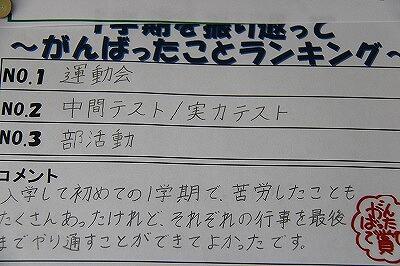 1学期を振り返って
～がんばったことランキング～
NO.1 運動会
NO.2 中間テスト/実力テスト
NO.3 部活動
コメント
入学して初めての1学期で、苦労したことも
たくさんあったけれど、それぞれの行事を最後
までやり通すことができてよかったです。
がんばったで賞